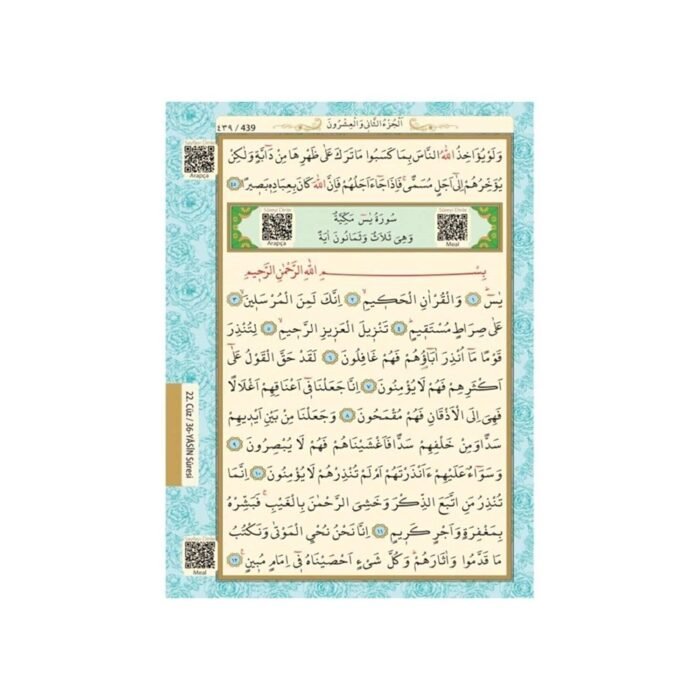 ٤٣٩ / 439
اَلْجُزْءُ الثَّانِي وَالْعِشْرُونَ
وَلَوْ يُؤَاخِذُ اللّٰهُ النَّاسَ بِمَا كَسَبُوا مَا تَرَكَ عَلٰى ظَهْرِهَا مِنْ دَٓابَّةٍ وَلٰكِنْ
يُؤَخِّرُهُمْ اِلٰٓى اَجَلٍ مُسَمًّىۚ فَاِذَا جَٓاءَ اَجَلُهُمْ فَاِنَّ اللّٰهَ كَانَ بِعِبَادِه۪ بَص۪يرًا ﴿٤٥﴾
سُورَةُ يٰسٓ مَكِّيَّةٌ
وَهِيَ ثَلَاثٌ وَثَمَانُونَ اٰيَةً
Arapça
Meal
بِسْمِ اللّٰهِ الرَّحْمٰنِ الرَّح۪يمِ
يٰسٓۜ ﴿١﴾ وَالْقُرْاٰنِ الْحَك۪يمِۙ ﴿٢﴾ اِنَّكَ لَمِنَ الْمُرْسَل۪ينَۙ ﴿٣﴾
عَلٰى صِرَاطٍ مُسْتَق۪يمٍۜ ﴿٤﴾ تَنْز۪يلَ الْعَز۪يزِ الرَّح۪يمِۙ ﴿٥﴾ لِتُنْذِرَ
قَوْمًا مَٓا اُنْذِرَ اٰبَٓاؤُ۬هُمْ فَهُمْ غَافِلُونَ ﴿٦﴾ لَقَدْ حَقَّ الْقَوْلُ عَلٰٓى
اَكْثَرِهِمْ فَهُمْ لَا يُؤْمِنُونَ ﴿٧﴾ اِنَّا جَعَلْنَا ف۪ٓي اَعْنَاقِهِمْ اَغْلَالًا
فَهِيَ اِلَى الْاَذْقَانِ فَهُمْ مُقْمَحُونَ ﴿٨﴾ وَجَعَلْنَا مِنْ بَيْنِ اَيْد۪يهِمْ
سَدًّا وَمِنْ خَلْفِهِمْ سَدًّا فَاَغْشَيْنَاهُمْ فَهُمْ لَا يُبْصِرُونَ ﴿٩﴾
وَسَوَٓاءٌ عَلَيْهِمْ ءَاَنْذَرْتَهُمْ اَمْ لَمْ تُنْذِرْهُمْ لَا يُؤْمِنُونَ ﴿١٠﴾ اِنَّمَا
تُنْذِرُ مَنِ اتَّبَعَ الذِّكْرَ وَخَشِيَ الرَّحْمٰنَ بِالْغَيْبِۚ فَبَشِّرْهُ
بِمَغْفِرَةٍ وَاَجْرٍ كَر۪يمٍ ﴿١١﴾ اِنَّا نَحْنُ نُحْيِ الْمَوْتٰى وَنَكْتُبُ
مَا قَدَّمُوا وَاٰثَارَهُمْۜ وَكُلَّ شَيْءٍ اَحْصَيْنَاهُ ف۪ٓي اِمَامٍ مُب۪ينٍ۟ ﴿١٢﴾
Arapça
22. Cüz / 36-YÂSÎN Sûresi
Meal